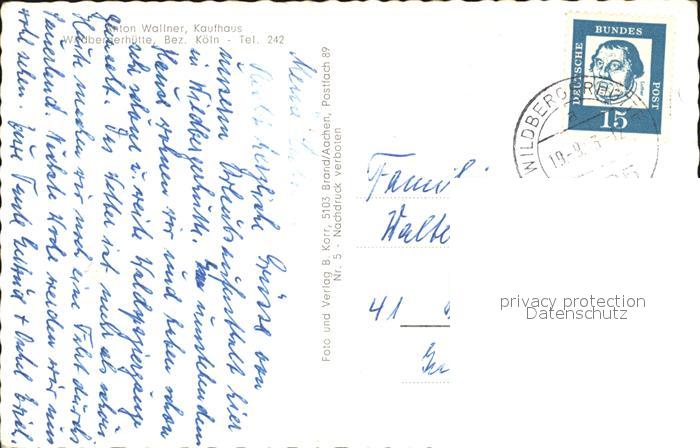 Anton Wallner, Kaufhaus
Wildbergerhütte, Bez. Köln - Tel. 242
Foto und Verlag B. Korr, 5103 Brand/Aachen, Postfach 89
Nr. 5 - Nachdruck verboten
DEUTSCHE
BUNDES
POST
15
WILDBERG
herzliche Grüsse von
unserem Urlaubsaufenthalt hier
in Wildbergerhütte. umstehenden
Haus wohnen wir und haben schon
sehr schöne u. weite Waldspaziergänge
gemacht. Das Wetter ist mehr als schön
Heute machen wir noch eine Fahrt durchs
Sauerland. Nächste Woche werden wir uns
wohl sehen. Eure Tante Gertrud + Onkel
Famil
Walte
41
privacy protection
Datenschutz